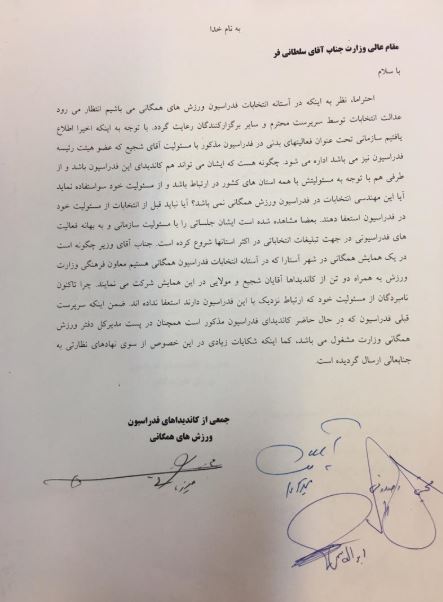 به نام خدا
مقام عالی وزارت جناب آقای سلطانی فر
با سلام
احتراما، نظر به اینکه در آستانه انتخابات فدراسیون ورزش های همگانی می باشیم انتظار می رود
عدالت انتخابات توسط سرپرست محترم و سایر برگزارکنندگان رعایت گردد. با توجه به اینکه اخیرا اطلاع
یافتیم سازمانی تحت عنوان فعالیتهای بدنی در فدراسیون مذکور با مسئولیت آقای شجیع که عضو هیئت رئیسه
فدراسیون نیز می باشد اداره می شود. چگونه هست که ایشان می تواند هم کاندیدای این فدراسیون باشد و از
طرفی هم با توجه به مسئولیتش با همه استان های کشور در ارتباط باشد و از مسئولیت خود سواستفاده نماید
آیا این مهندسی انتخابات در فدراسیون ورزش همگانی نمی باشد؟ آیا نباید قبل از انتخابات از مسئولیت خود
در فدراسیون استعفا دهند. بعضا مشاهده شده است ایشان جلساتی را با مسئولیت سازمانی و به بهانه فعالیت
های فدراسیونی در جهت تبلیغات انتخاباتی در اکثر استانها شروع کرده است. جناب آقای وزیر چگونه است
در یک همایش همگانی در شهر آستارا که در آستانه انتخابات فدراسیون همگانی هستیم معاون فرهنگی وزارت
ورزش به همراه دو تن از کاندیداها آقایان شجیع و مولایی در این همایش شرکت می نمایند. چرا تاکنون
نامبردگان از مسئولیت خود که ارتباط نزدیک با این فدراسیون دارند استعفا نداده اند. ضمن اینکه سرپرست
قبلی فدراسیون که در حال حاضر کاندیدای فدراسیون مذکور است همچنان در پست مدیرکل دفتر ورزش
همگانی وزارت مشغول می باشد، کما اینکه شکایات زیادی در این خصوص از سوی نهادهای نظارتی به
جنابعالی ارسال گردیده است.
جمعی از کاندیداهای فدراسیون
ورزش های همگانی